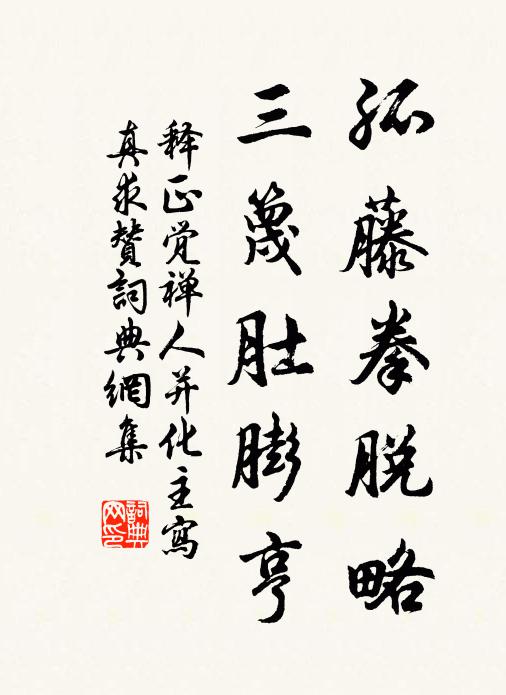 孤藤拳脱略
三篾肚膨亨
释正觉禅人并化主寫
真求贊詞典網集
詞典网印